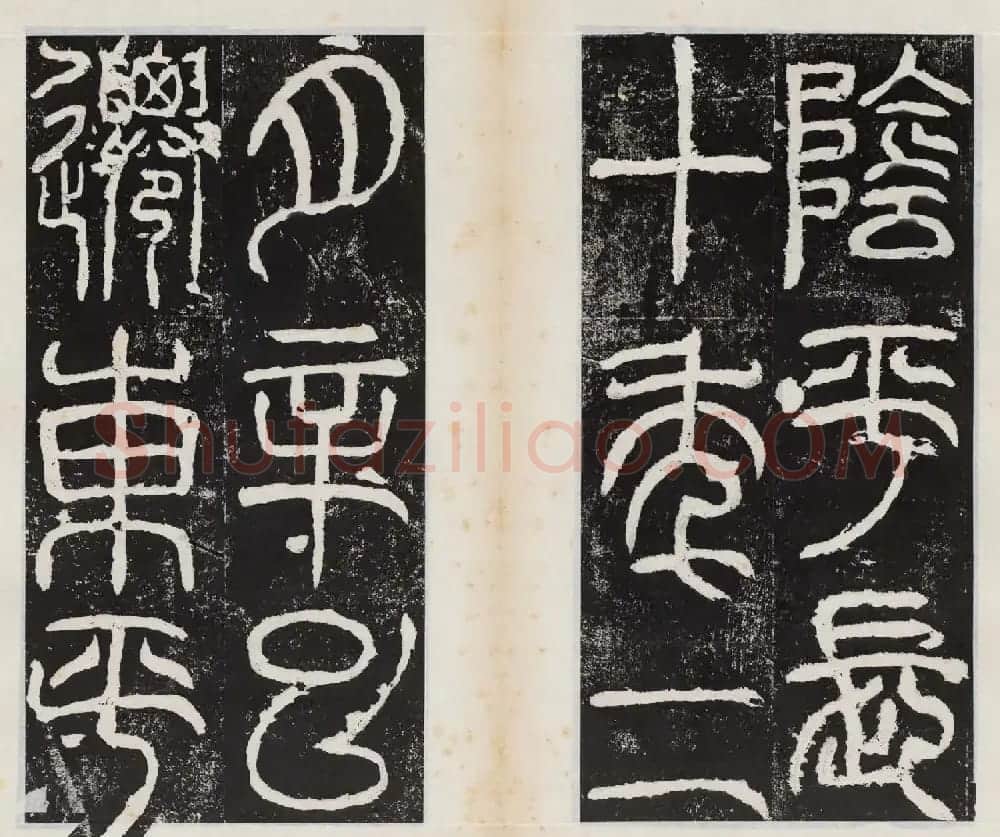 陰平長
十年二
月辛巳
遷東平
Shufaziliao.COM